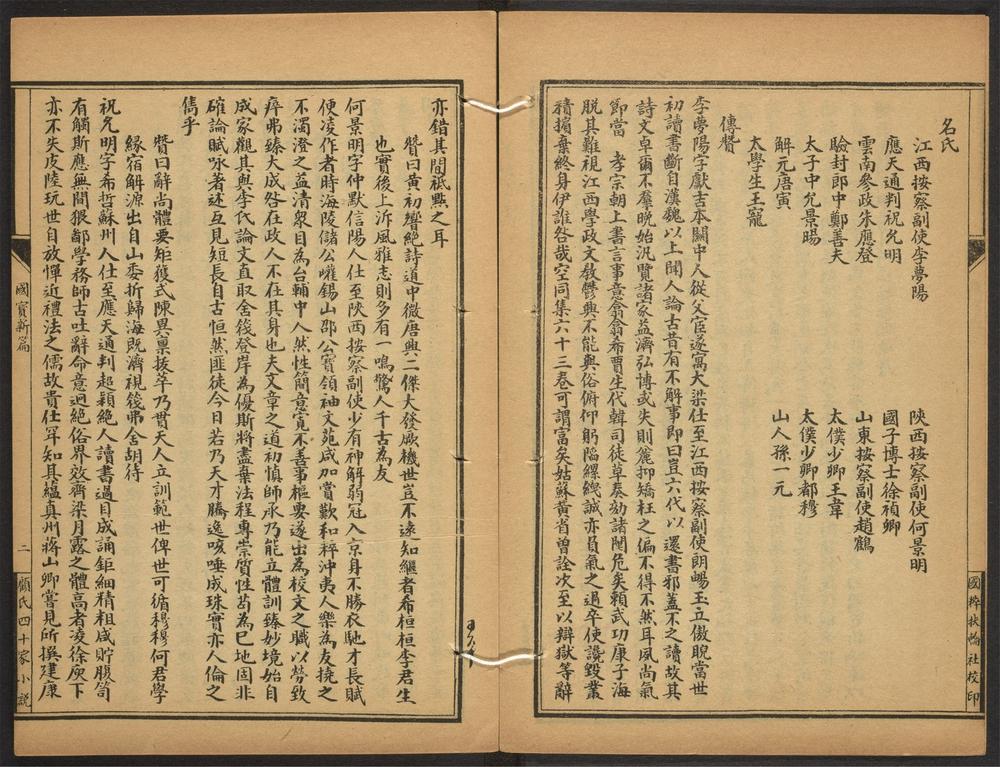 名氏
江西按察副使李夢陽
陝西按察副使何景明
應天通判祝允明
國子博士徐禎卿
雲南參政朱應登
山東按察副使趙鶴
驗封郎中鄭善夫
太僕少卿王韋
太子中允景暘
太僕少卿都穆
解元唐寅
山人孫一元
太學生王寵
傳贊
李夢陽字獻吉本關中人從父宦遂寓大梁仕至江西按察副使朗暢玉立傲睨當世
初讀書斷自漢魏以上聞人論古昔有不解事即曰豈六代以還書邪蓋不之讀故其
詩文卓爾不羣晚始汎覽諸家益濟弘博或失則麤抑矯枉之偏不得不然耳夙尚氣
節當 孝宗朝上書言事意翕翕希賈生代韓司徒草奏劾諸閹危矣賴武功康子海
脱其難視江西學政文教鬱興不能與俗俯仰躬陷縲紲誠亦負氣之過卒使讒毀叢
積擯棄終身伊誰咎哉空同集六十三卷可謂富矣姑蘇黃省曾詮次至以辯獄等辭
亦錯其間祗㸃之耳
贊曰黃初響絶詩道中微唐興二傑大發厥機世豈不遠知繼者希桓桓李君生
也實後上泝風雅志則多有一鳴驚人千古為友
何景明字仲默信陽人仕至陝西按察副使少有神解弱冠入京身不勝衣馳才長賦
便凌作者時海陵儲公巏錫山邵公寶領袖文苑咸加賞歎和粹沖夷人樂為友撓之
不濁澄之益清衆目為台輔中人然性簡意寬不善事樞要遂出為校文之職以勞致
瘁弗臻大成咎在政人不在其身也夫文章之道初慎師承乃能立體訓臻妙境始自
成家觀其與李氏論文直取舍筏登岸為優斯將盡棄法程專崇質性苟為已地固非
確論賦咏著述互見短長自古恒然匪徒今日若乃天才騰逸咳唾成珠實亦人倫之
雋乎
贊曰辭尚體要矩矱式陳異稟拔萃乃貫天人立訓範世俾世可循穆穆何君學
緣宿解源出自山委折歸海既濟視筏弗舍胡待
祝允明字希哲蘇州人仕至應天通判超穎絶人讀書過目成誦鉅細精粗咸貯腹笥
有觸斯應無間猥鄙學務師古吐辭命意迥絶俗界效齊梁月露之體高者凌徐庾下
亦不失皮陸玩世自放憚近禮法之儒故貴仕罕知其藴真州蔣山卿嘗見所撰建康
國寶新篇
二
顧氏四十家小說
國粹扶輪社校印